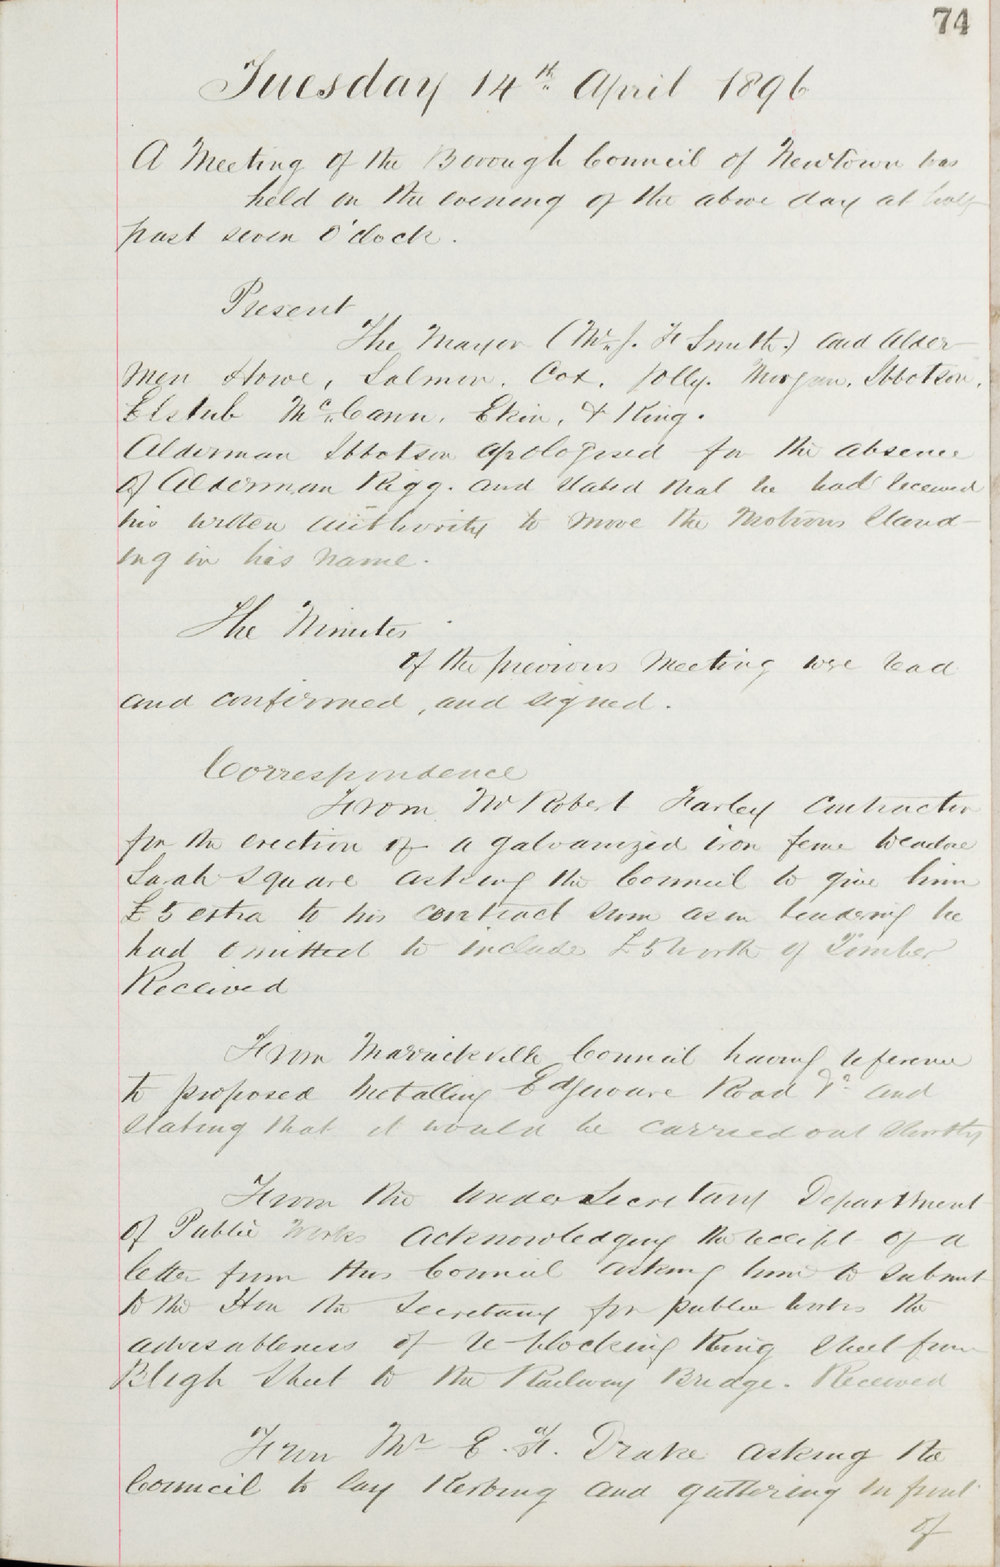 74
Tuesday 14th April 1896
A Meeting of the Borough Council of Newtown was
held on the evening of the above day at half
past seven O'clock.
Present
The Mayor (Mr J. F Smith.) and Alder-
men Howe, Salmon. Cox. Jolly. Morgan. Ibbotson,
Elstub McCann. Ekin, & King.
Alderman Ibbotson apologised for the absence
of Alderman Rigg. and stated that he had received
his written authority to move the Motions stand-
ing in his name.
The Minutes
of the previous Meeting were read
and confirmed, and signed.
Correspondence
From Mr Robert Farley Contractor
for the erection of a galvanized iron fence
Sarah Square asking the Council to give him
£5 extra to his contract sum as in tendering he
had omitted to include £5 worth of Timber
Received
From Marrickville Council having reference
to proposed Metalling Edgeware Road and
stating that it would be carried out shortly
From the Under Secretary Department
of Public Works acknowledging the receipt of a
letter from this Council asking him to submit
to the Hon the Secretary for public works the
advisableness of re-blocking King Street from
Bligh Street to the Railway Bridge. Received
From Mr E. H. Drake asking the
Council to lay Kerbing and guttering in front
of